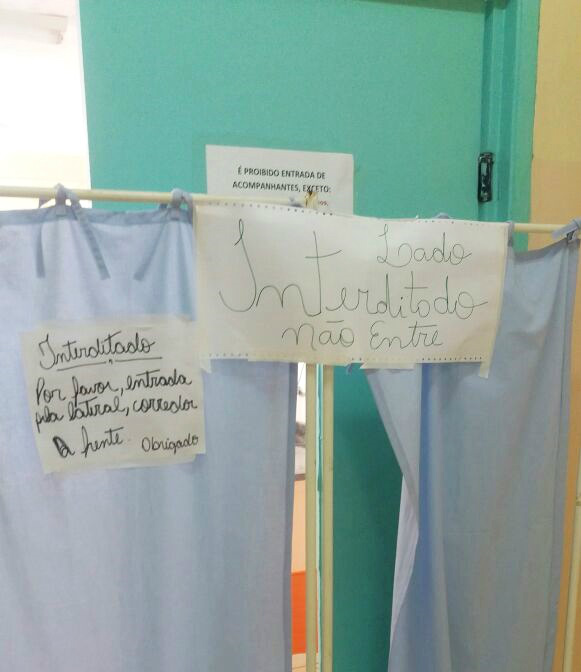 É PROIBIDO ENTRADA DE
ACOMPANHANTES, EXCETO:
Lado
Interditado
não Entre
Interditado
Por favor, entrada
pela lateral, corredor
A frente. Obrigado